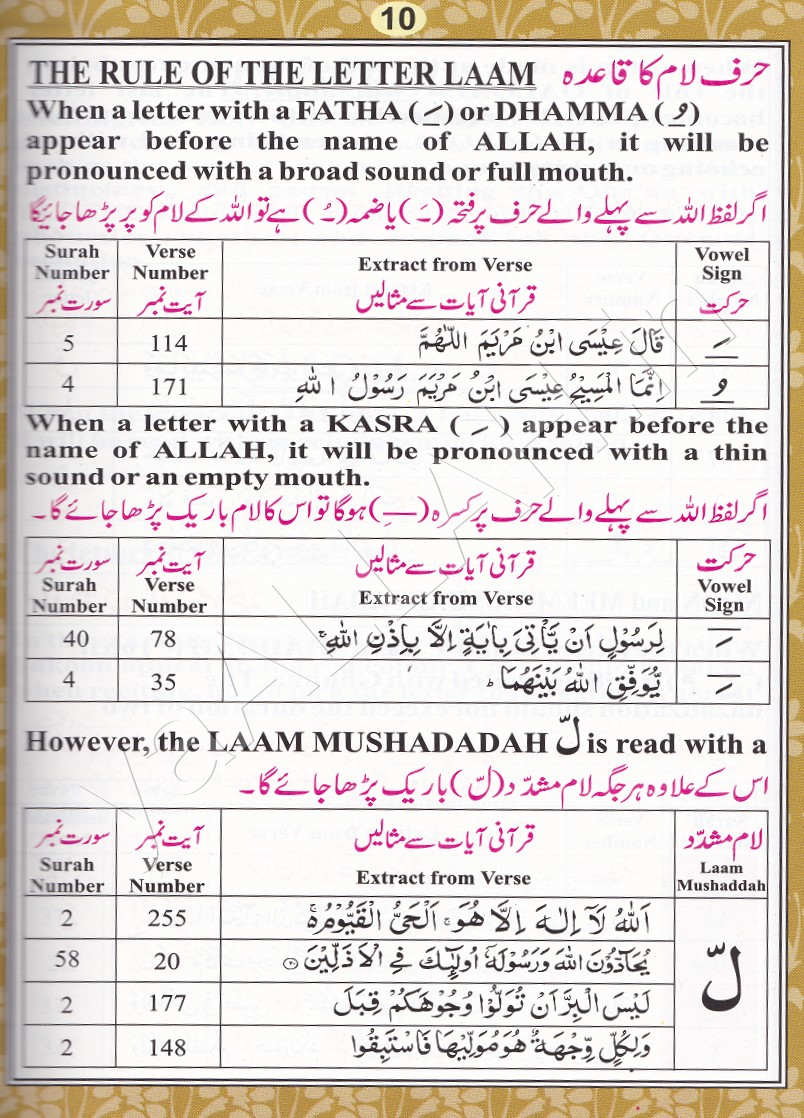 10
THE RULE OF THE LETTER LAAM حرف لام کا قاعدہ
When a letter with a FATHA (ـَ) or DHAMMA (ـُ)
appear before the name of ALLAH, it will be
pronounced with a broad sound or full mouth.
اگر لفظ اللہ سے پہلے والے حرف پر فتحہ (ـَ) یا ضمہ (ـُ) ہے تو اللہ کے لام کو پر پڑھا جائیگا
Surah Number Verse Number Extract from Verse Vowel Sign
سورت نمبر آیت نمبر قرآنی آیات سے مثالیں حرکت
5 114 قَالَ عِيْسَى ابْنُ مَرْيَمَ اللّٰهُمَّ ـَ
4 171 اِنَّمَا الْمَسِيْحُ عِيْسَى ابْنُ مَرْيَمَ رَسُوْلُ اللّٰهِ ـُ
When a letter with a KASRA (ـِ) appear before the
name of ALLAH, it will be pronounced with a thin
sound or an empty mouth.
اگر لفظ اللہ سے پہلے والے حرف پر کسرہ (ـِ) ہوگا تو اس کا لام باریک پڑھا جائے گا۔
سورت نمبر آیت نمبر قرآنی آیات سے مثالیں حرکت
Surah Number Verse Number Extract from Verse Vowel Sign
40 78 لِرَسُوْلٍ اَنْ يَّاْتِىَ بِاٰيَةٍ اِلَّا بِاِذْنِ اللّٰهِ ۚ ـِ
4 35 يُّوَفِّقِ اللّٰهُ بَيْنَهُمَا ـِ
However, the LAAM MUSHADADAH لّ is read with a
اس کے علاوہ ہر جگہ لام مشدّد (لّ) باریک پڑھا جائے گا۔
سورت نمبر آیت نمبر قرآنی آیات سے مثالیں لام مشدّد
Surah Number Verse Number Extract from Verse Laam Mushaddah
2 255 اَللّٰهُ لَآ اِلٰهَ اِلَّا هُوَ ۚ اَلْحَىُّ الْقَيُّوْمُ ۚ لّ
58 20 يُحَآدُّوْنَ اللّٰهَ وَرَسُوْلَهٗٓ اُولٰٓئِكَ فِى الْاَذَلِّيْنَ
2 177 لَيْسَ الْبِرَّ اَنْ تُوَلُّوْا وُجُوْهَكُمْ قِبَلَ
2 148 وَلِكُلٍّ وِّجْهَةٌ هُوَ مُوَلِّيْهَا فَاسْتَبِقُوا